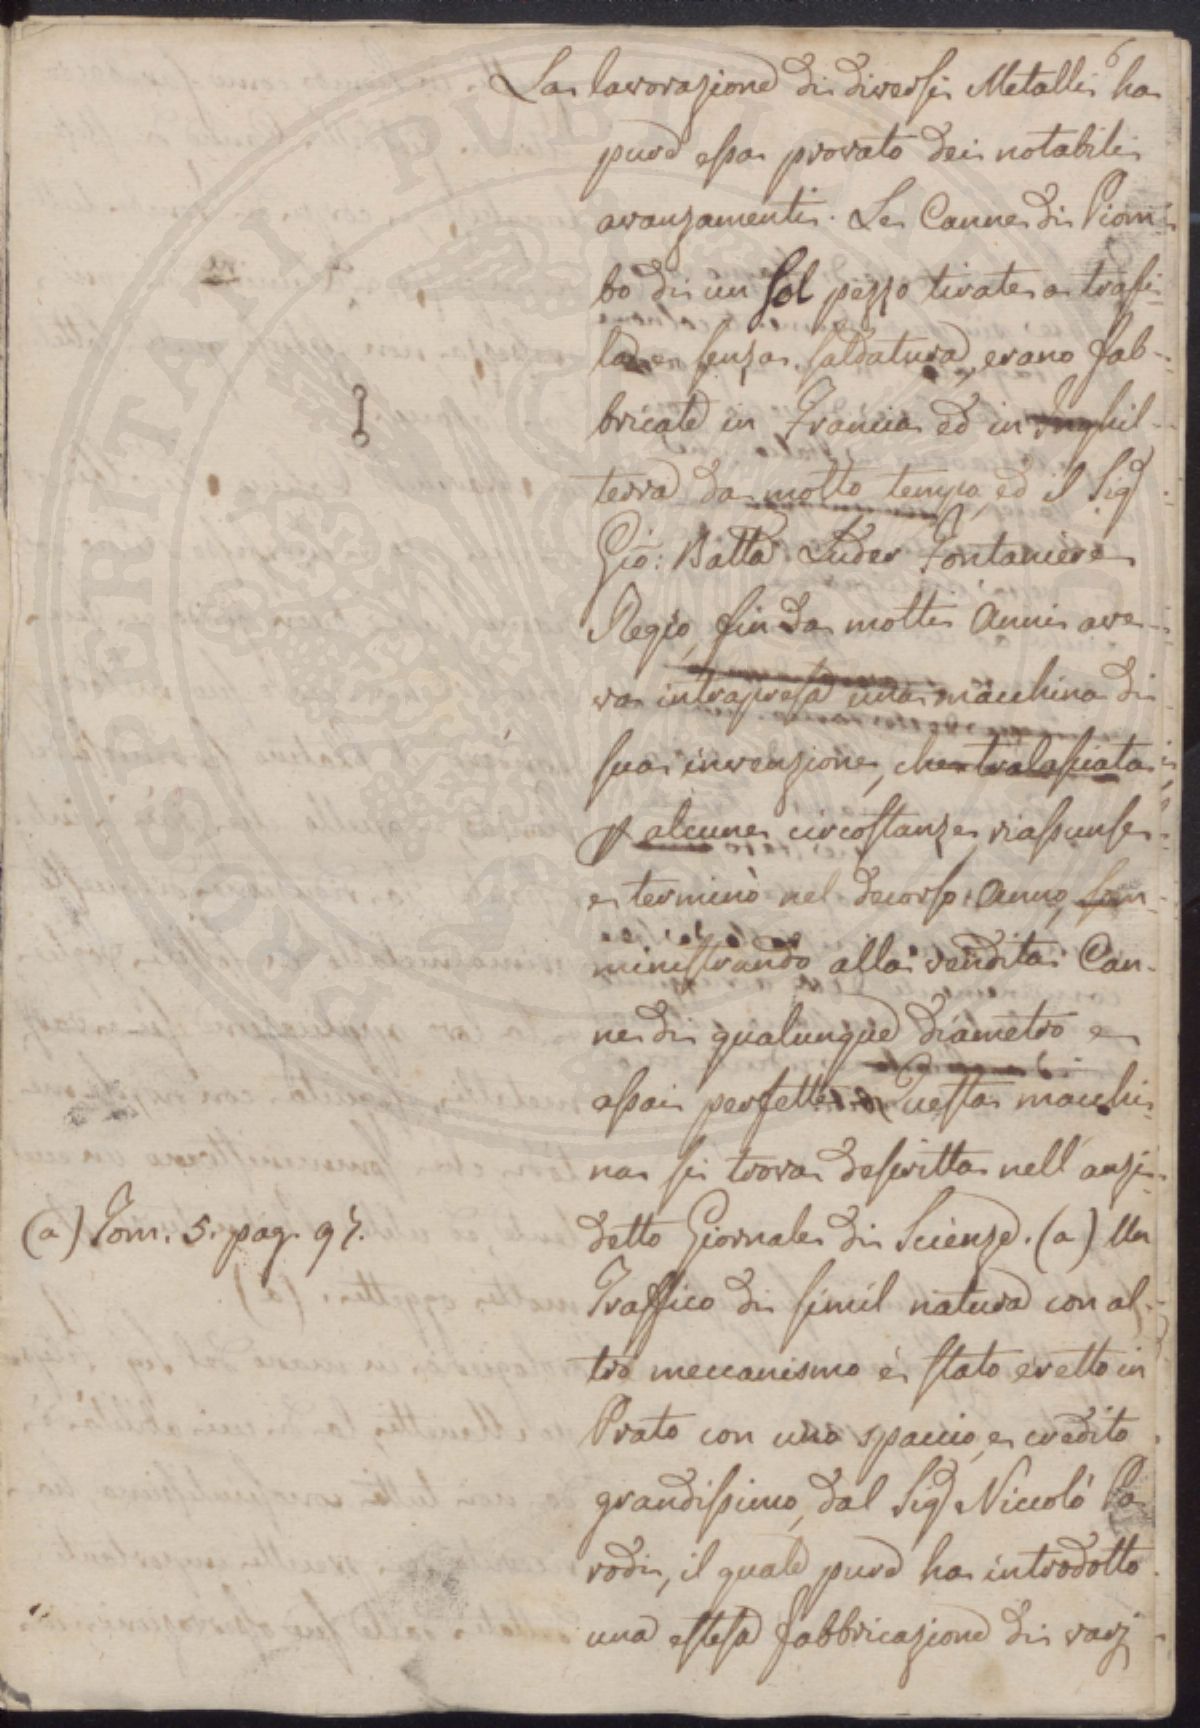 6
La lavorazione di diversi Metalli ha
pure essa provato dei notabili
avanzamenti. Le Canne di Piom-
bo di un sol pezzo tirate a trafi-
la e senza saldatura, erano fab-
bricate in Francia ed in Inghil-
terra da molto tempo, ed il Sig.r
Gio: Batta Luder Fontaniere
Regio, fin da molti Anni ave-
va intrapresa una macchina di
sua invenzione, che tralasciata
p alcune circostanze riassunse
e terminò nel decorso Anno, som-
ministrando alla vendita Can-
ne di qualunque diametro e
assai perfette. Questa macchi-
na si trova descritta nell'anzi-
detto Giornale di Scienze. (a) Un
(a) Tom. 5. pag. 97.
Traffico di simil natura con al-
tro meccanismo è stato eretto in
Prato con uno spaccio, e credito
grandissimo, dal Sig.r Niccolò Pa-
rodi, il quale pure ha introdotto
una estesa fabbricazione di varj
PROSPERITATI PUBLICAE